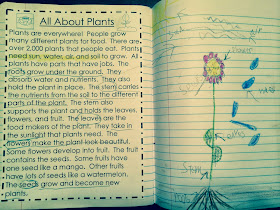 All About Plants
Plants are everywhere! People grow
many different plants for food. There are
over 2,000 plants that people eat. Plants
need sun, water, air, and soil to grow. All
plants have parts that have jobs. The
roots grow under the ground. They
absorb water and nutrients. They also
hold the plant in place. The stem carries
the nutrients from the soil to the different
parts of the plant. The stem also
supports the plant and holds the leaves,
flowers, and fruit. The leaves are the
food makers of the plant! They take in
the sunlight that plants need. The
flowers make the plant look beautiful.
Some flowers develop into fruit. The fruit
contains the seeds. Some fruits have
one seed like a mango. Other fruits
have lots of seeds like a watermelon.
The seeds grow and become new
plants.